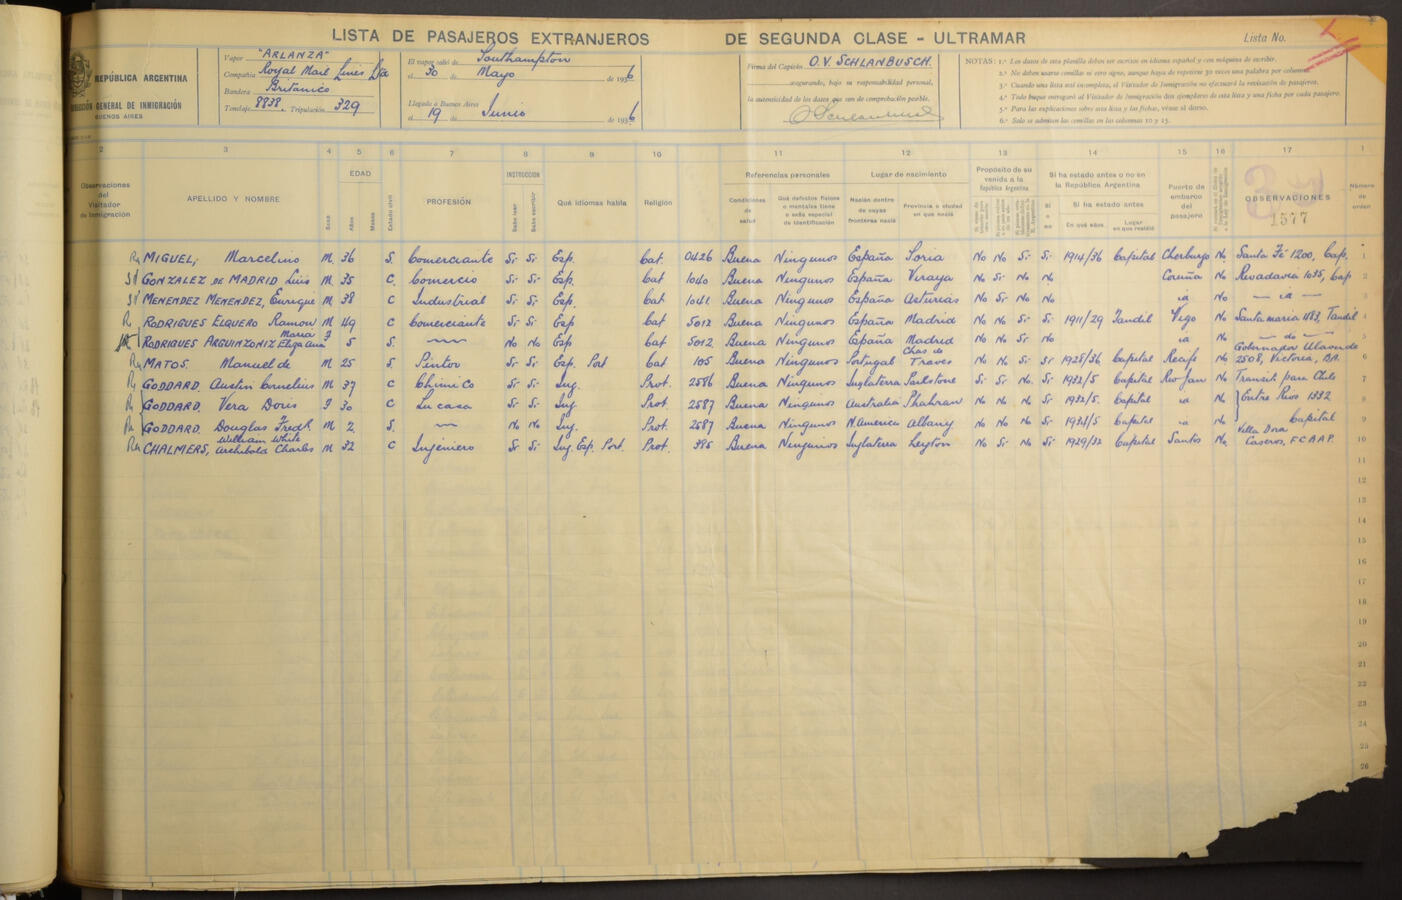 LISTA DE PASAJEROS EXTRANJEROS DE SEGUNDA CLASE - ULTRAMAR Lista No. 1
REPÚBLICA ARGENTINA
DIRECCIÓN GENERAL DE INMIGRACIÓN
BUENOS AIRES
Vapor "ARLANZA"
Compañía Royal Mail Lines Lda
Bandera Britanico
Tonelaje 8838. Tripulación 329
El vapor salió de Southampton
el 30 de Mayo de 1936
Llegado a Buenos Aires
el 19 de Junio de 1936
Firma del Capitán O.V. SCHLANBUSCH.
asegurando, bajo su responsabilidad personal,
la autenticidad de los datos que son de comprobación posible.
NOTAS: 1.ª Los datos de esta planilla deben ser escritos en idioma español y con máquina de escribir.
2.ª No deben usarse comillas ni otro signo, aunque haya de repetirse 30 veces una palabra por columna.
3.ª Cuando una lista esté incompleta, el Visitador de Inmigración no efectuará la revisación de pasajeros.
4.ª Todo buque entregará al Visitador de Inmigración dos ejemplares de esta lista y una ficha por cada pasajero.
5.ª Para las explicaciones sobre esta lista y las fichas, véase el dorso.
6.ª Solo se admiten las comillas en las columnas 10 y 15.
2 3 4 5 6 7 8 9 10 11 12 13 14 15 16 17 1
Observaciones del Visitador de Inmigración
APELLIDO Y NOMBRE
Sexo
EDAD
Años
Meses
Estado civil
PROFESIÓN
INSTRUCCIÓN
Sabe leer
Sabe escribir
Qué idiomas habla
Religión
Referencias personales
Condiciones de salud
Qué defectos físicos o mentales tiene o seña especial de identificación
Lugar de nacimiento
Nación dentro de cuyas fronteras nació
Provincia o ciudad en que nació
Propósito de su venida a la República Argentina
Si ha estado antes o no en la República Argentina
Si o no
Si ha estado antes
En qué años
Lugar en que residió
Puerto de embarco del pasajero
OBSERVACIONES
1577
Número de orden
MIGUEL, Marcelino M 36 S. Comerciante Si Si Esp. Cat. 0426 Buena Ningunos España Soria No No Si Si 1914/36 Capital Cherburgo No Santa Fé 1200, Cap. 1
GONZALEZ DE MADRID Luis M 35 C. Comercio Si Si Esp. Cat 1040 Buena Ningunos España No Si No No Coruña No Rivadavia 1035, Cap 2
MENENDEZ MENENDEZ, Enrique M 38 C Industrial Si Si Esp. Cat 1041 Buena Ningunos España Asturias No Si No No ia No — ia — 3
RODRIGUES ELQUERO Ramon M 49 C Comerciante Si Si Esp Cat 5012 Buena Ningunos España Madrid No No Si Si 1911/29 Tandil Vigo No Santamaria 483, Tandil 4
RODRIGUES ARGUINZONIZ Maria Eliza Ana F 5 S. No No Esp Cat 5012 Buena Ningunos España Madrid No No Si No ia No — do — 5
MATOS, Manuel de M 25 S. Pintor Si Si Esp. Port Cat 105 Buena Ningunos Portugal Chao de Traves No No Si Si 1928/36 Capital Recife No Gobernador Ulavonde 2508, Victoria, BA. 6
GODDARD, Austin Cornelius M 37 C Chimico Si Si Ing. Prot. 2586 Buena Ningunos Inglaterra Si Si No. Si 1932/5 Capital Rio Jan No Transit para Chile 7
GODDARD, Vera Doris F 30 C Su casa Si Si Ing. Prot. 2587 Buena Ningunos Australia No No No Si 1932/5. Capital ia No Entre Rios 1332 8
GODDARD, Douglas Fredk M 2 S. No No Ing. Prot. 2587 Buena Ningunos N. America Albany No No No Si 1934/5 Capital ia No Capital 9
CHALMERS, William White Archibald Charles M 32 C Ingeniero Si Si Ing. Esp. Port. Prot. 395 Buena Ningunos Inglaterra Leyton No Si No Si 1929/32 Capital Santos No. Villa Dora Caseros, F.C.B.A.P. 10
11
12
13
14
15
16
17
18
19
20
21
22
23
24
25
26